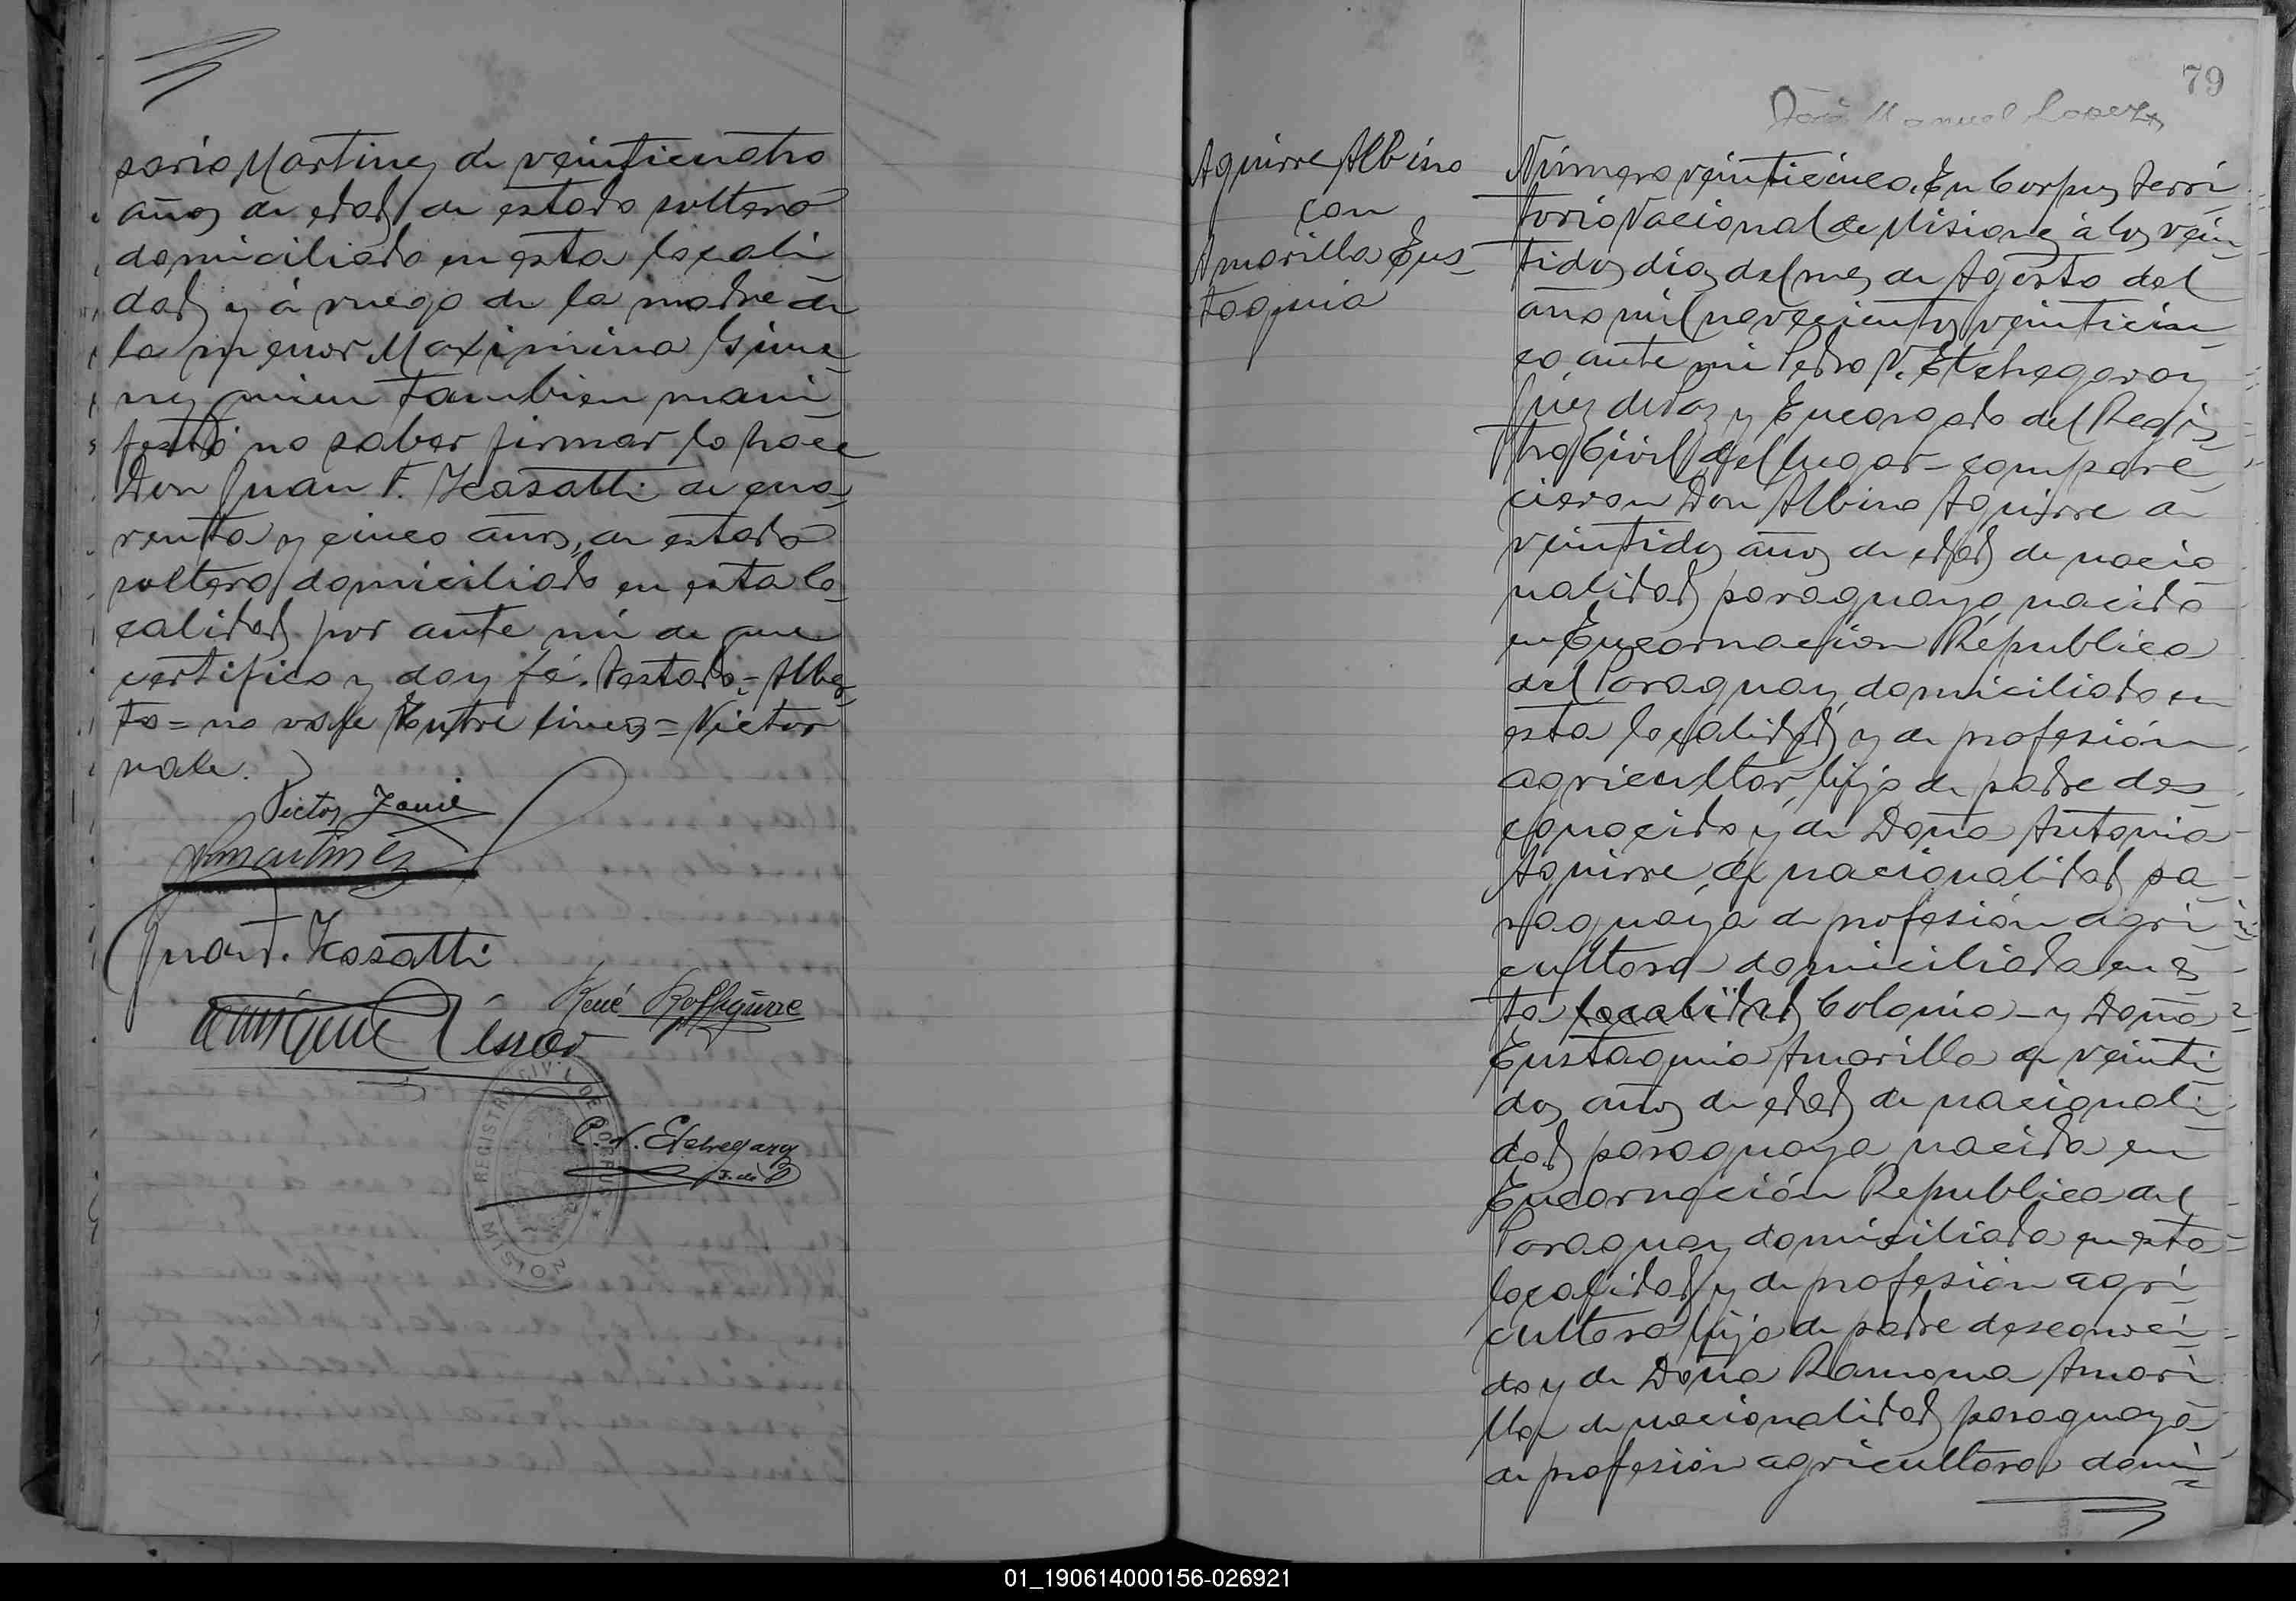 sario Martinez de veinticuatro
años de edad, de estado soltero
domiciliado en esta locali
dad y á ruego de la madre de
la menor Maximina Gime
nez quien tambien mani
festó no saber firmar lo hace
Don Juan F. Kasatti de cua
renta y cinco años, de estado
soltero domiciliado en esta lo
calidad por ante mi de que
certifico y doy fé. Testado = Alber
to = no vale Entre lineas = Victor
vale.
Victor
Martinez
Juan F. Kasatti
René
Enrique
REGISTRO CIVIL DE CORPUS
MISIONES
P. V. Etchegaray
J. de P
79
José Manuel Lopez
Aguirre Albino
con
Amarilla Eus-
taquia
Número veinticinco. En Corpus, Terri
torio Nacional de Misiones á los vein
tidos dias del mes de Agosto del
año mil novecientos veinticin
co ante mi Pedro V. Etchegaray
Juez de Paz y Encargado del Regis
tro Civil del lugar - compare
cieron Don Albino Aguirre de
veintidos años de edad de nacio
nalidad paraguaya nacido
en Encarnacion República
del Paraguay, domiciliado en
esta localidad y de profesión
agricultor, hijo de padre des
conocido y de Doña Antonia
Aguirre, de nacionalidad pa
raguaya de profesión agri
cultora domiciliada en es
ta localidad Colonia - y Doña
Eustaquia Amarilla de veinti
dos años de edad de nacionali
dad paraguaya nacida en
Encarnación Republica del
Paraguay domiciliada en esta
localidad y de profesión agri
cultora hija de padre desconoci
do y de Doña Ramona Amari
lla de nacionalidad paraguaya
de profesión agricultora domi
01_190614000156-026921